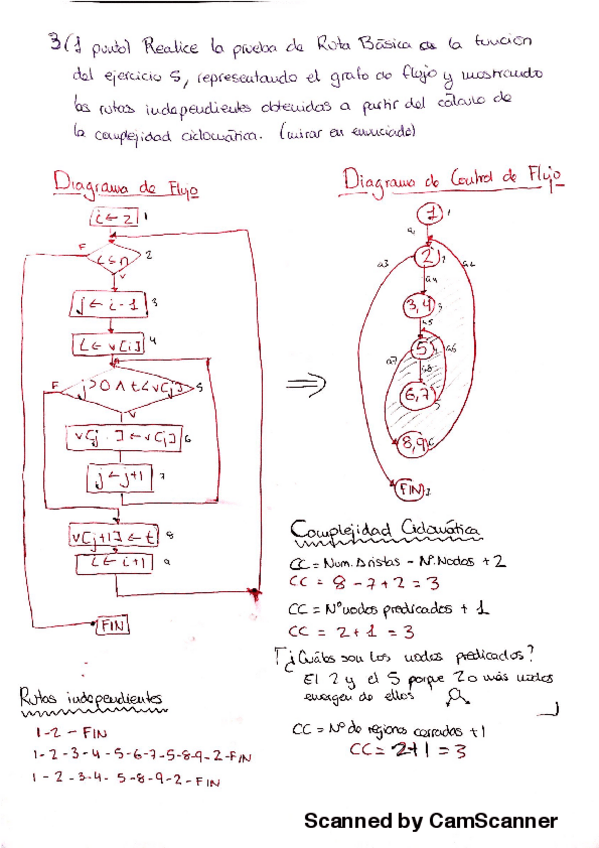 3 (1 punto) Realice la prueba de Ruta Básica de la función
del ejercicio 5, representando el grafo de flujo y mostrando
las rutas independientes obtenidas a partir del cálculo de
la complejidad ciclomática. (mirar en enunciado)
Diagrama de Flujo
i ← 2 1
F
i ≤ n 2
V
j ← i - 1 3
t ← v[i] 4
F
j > 0 ∧ t < v[j] 5
V
v[j+1] ← v[j] 6
j ← j+1 7
v[j+1] ← t 8
i ← i+1 9
FIN
⇒
Diagrama de Control de Flujo
1 1
a1
2 2
a3
a2
a4
3,4 3
a5
5
a7
a6
a8
6,7 5
8,9 6
FIN 7
Complejidad Ciclomática
CC = Num. Aristas - Nº. Nodos + 2
CC = 8 - 7 + 2 = 3
CC = Nº nodos predicados + 1
CC = 2 + 1 = 3
¿Cuáles son los nodos predicados?
El 2 y el 5 porque 2 o más nodos
emergen de ellos
CC = Nº de regiones cerradas + 1
CC = 2 + 1 = 3
Rutas independientes
1 - 2 - FIN
1 - 2 - 3 - 4 - 5 - 6 - 7 - 5 - 8 - 9 - 2 - FIN
1 - 2 - 3 - 4 - 5 - 8 - 9 - 2 - FIN
Scanned by CamScanner